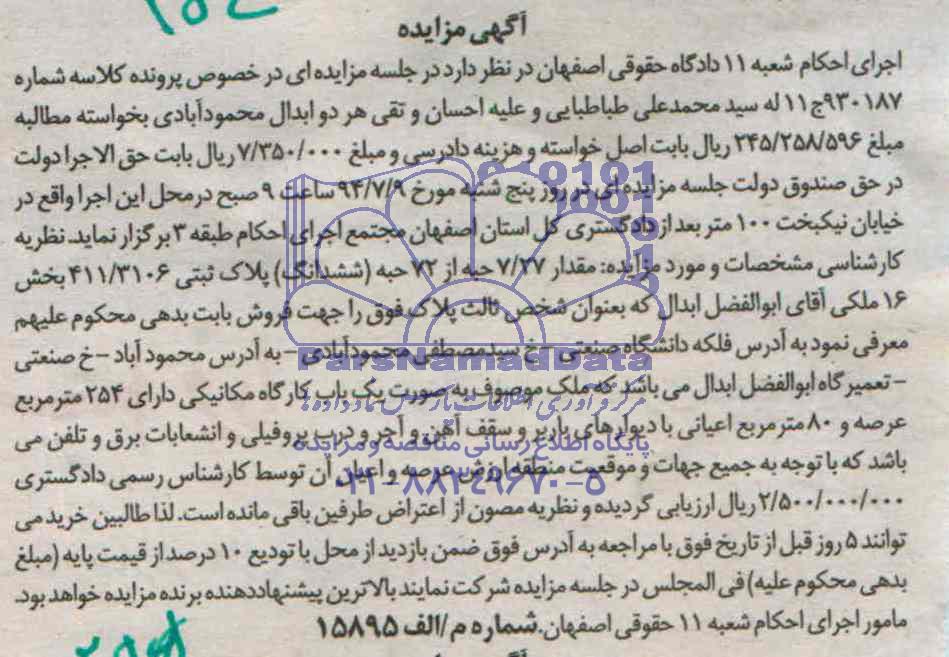 آگهی مزایده
اجرای احکام شعبه ۱۱ دادگاه حقوقی اصفهان در نظر دارد در جلسه مزایده ای در خصوص پرونده کلاسه شماره
۹۳۰۱۸۷ج۱۱ له سید محمدعلی طباطبایی و علیه احسان و تقی هر دو ابدال محمودآبادی بخواسته مطالبه
مبلغ ۲۴۵/۲۵۸/۵۹۶ ریال بابت اصل خواسته و هزینه دادرسی و مبلغ ۷/۳۵۰/۰۰۰ ریال بابت حق الاجرا دولت
در حق صندوق دولت جلسه مزایده ای در روز پنج شنبه مورخ ۹۴/۷/۹ ساعت ۹ صبح در محل این اجرا واقع در
خیابان نیکبخت ۱۰۰ متر بعد از دادگستری کل استان اصفهان مجتمع اجرای احکام طبقه ۳ برگزار نماید. نظریه
کارشناسی مشخصات و مورد مزایده: مقدار ۷/۲۷ حبه از ۷۲ حبه (ششدانگ) پلاک ثبتی ۴۱۱/۳۱۰۶ بخش
۱۶ ملکی آقای ابوالفضل ابدال که بعنوان شخص ثالث پلاک فوق را جهت فروش بابت بدهی محکوم علیهم
معرفی نمود به آدرس فلکه دانشگاه صنعتی -خ سیدمصطفی محمودآبادی - به آدرس محمود آباد -خ صنعتی
- تعمیرگاه ابوالفضل ابدال می باشد که ملک موصوف به صورت یک باب کارگاه مکانیکی دارای ۲۵۴ مترمربع
عرصه و ۸۰ مترمربع اعیانی با دیوارهای باربر و سقف آهن و آجر و درب پروفیلی و انشعابات برق و تلفن می
باشد که با توجه به جمیع جهات و موقعیت منطقه ارزش عرصه و اعیان آن توسط کارشناس رسمی دادگستری
۲/۵۰۰/۰۰۰/۰۰۰ ریال ارزیابی گردیده و نظریه مصون از اعتراض طرفین باقی مانده است. لذا طالبین خرید می
توانند ۵ روز قبل از تاریخ فوق با مراجعه به آدرس فوق ضمن بازدید از محل با تودیع ۱۰ درصد از قیمت پایه (مبلغ
بدهی محکوم علیه) فی المجلس در جلسه مزایده شرکت نمایند بالاترین پیشنهاددهنده برنده مزایده خواهد بود.
مامور اجرای احکام شعبه ۱۱ حقوقی اصفهان. شماره م/الف ۱۵۸۹۵
ParsNamadData
پایگاه اطلاع رسانی مناقصه و مزایده
۰۲۱-۸۸۳۴۹۶۷۰-۵